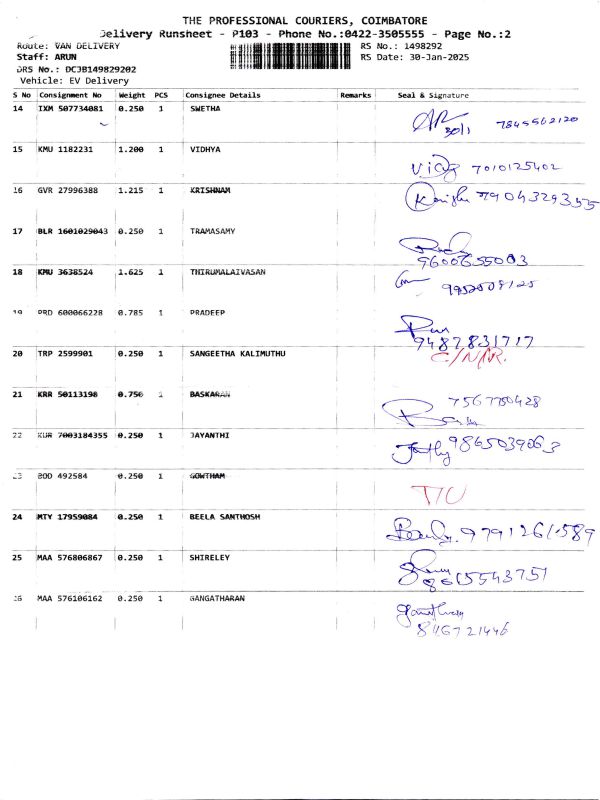 THE PROFESSIONAL COURIERS, COIMBATORE
Delivery Runsheet - P103 - Phone No.:0422-3505555 - Page No.:2
Route: VAN DELIVERY RS No.: 1498292
Staff: ARUN RS Date: 30-Jan-2025
DRS No.: DCJB149829202
Vehicle: EV Delivery
S No Consignment No Weight PCS Consignee Details Remarks Seal & Signature
14 IXM 507734081 0.250 1 SWETHA
30/1 7845562120
15 KMU 1182231 1.200 1 VIDHYA
7010125402
16 GVR 27996388 1.215 1 KRISHNAM
7904329355
17 BLR 1601029043 0.250 1 TRAMASAMY
9600655003
18 KMU 3638524 1.625 1 THIRUMALAIVASAN
9952509125
19 PRD 600066228 0.785 1 PRADEEP
9487831717
20 TRP 2599901 0.250 1 SANGEETHA KALIMUTHU
C/N/R.
21 KRR 50113198 0.750 1 BASKARAN
22 KUR 7003184355 0.250 1 JAYANTHI
9865039063
23 BOD 492584 0.250 1 GOWTHAM
T/U
24 MTY 17959084 0.250 1 BEELA SANTHOSH
9791261589
25 MAA 576806867 0.250 1 SHIRELEY
8615543751
26 MAA 576106162 0.250 1 GANGATHARAN